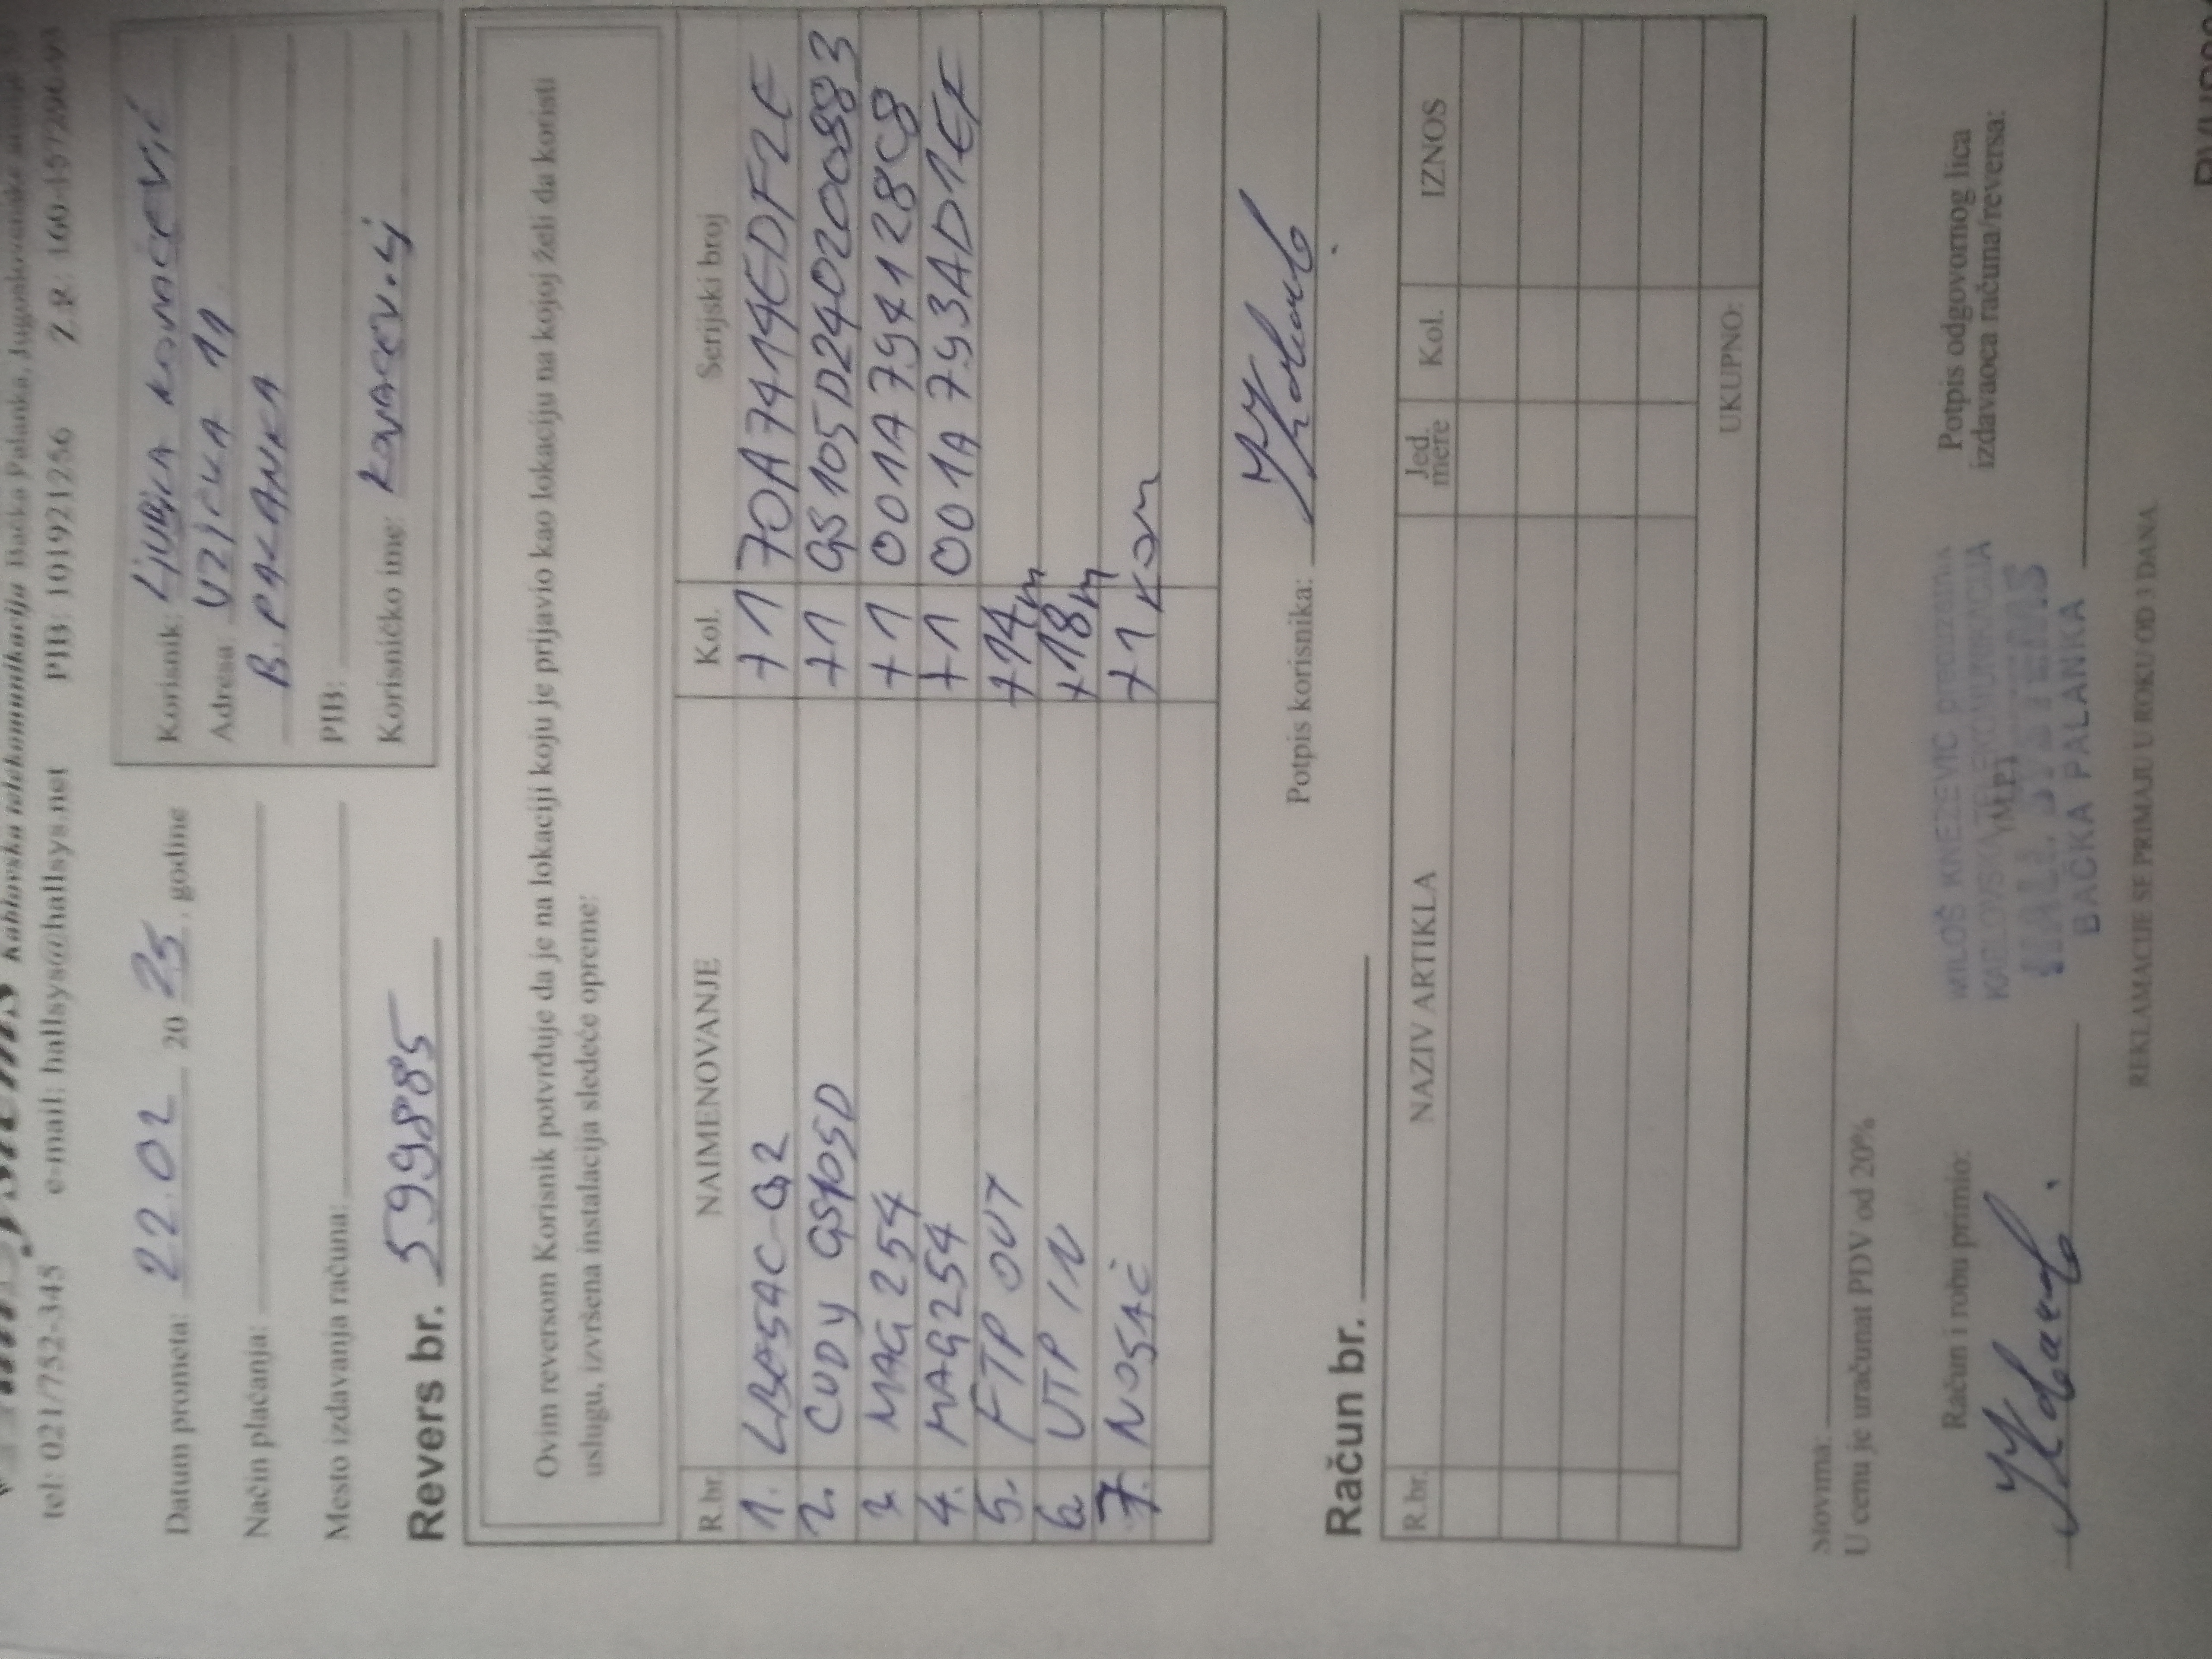 Kablovska telekomunikacija Bačka Palanka, Jugoslovenske
tel: 021/752-345 e-mail: hallsys@hallsys.net PIB: 101921256 Ž.R. 160-157296-93
Datum prometa: 22.02 20 25. godine
Način plaćanja:
Mesto izdavanja računa:
Korisnik: Ljubica Kovačević
Adresa: UŽIČKA 11
B. PALANKA
PIB:
Korisničko ime: kovacev.lj
Revers br. 599885
Ovim reversom Korisnik potvrđuje da je na lokaciji koju je prijavio kao lokaciju na kojoj želi da koristi
uslugu, izvršena instalacija sledeće opreme:
R.br. NAIMENOVANJE Kol. Serijski broj
1. LBE5AC-G2 +1 70A7414EDF2E
2. CUDY GS105D +1 GS105D240200883
3 MAG 254 +1 001A794128C8
4. MAG254 +1 001A793AD1EF
5. FTP OUT +14m
6. UTP IN +18m
7. NOSAČ +1 kom
Potpis korisnika:
Račun br.
R.br. NAZIV ARTIKLA Jed. mere Kol. IZNOS
UKUPNO:
Slovima:
U cenu je uračunat PDV od 20%
Račun i robu primio:
MILOŠ KNEŽEVIĆ preduzetnik
KABLOVSKA TELEKOMUNIKACIJA
HALL SYSTEMS
BAČKA PALANKA
(M.P.)
Potpis odgovornog lica
izdavaoca računa/reversa:
REKLAMACIJE SE PRIMAJU U ROKU OD 3 DANA.